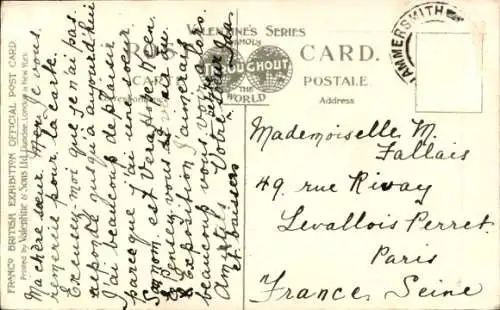 FRANCO BRITISH EXHIBITION OFFICIAL POST CARD
Printed by Valentine & Sons Ltd. Dundee, London & New York
VALENTINE'S SERIES
FAMOUS
THROUGHOUT
THE WORLD
POST CARD.
CARTE POSTALE.
Correspondence
Address
HAMMERSMITH
Ma chère sœur. Mon Je vous
remerie pour la carte.
Excusez moi que je n'ai pas
réponde jusqu'à aujourd'hui
J'ai beaucoup de plaisir
parceque j'ai une soeur
Son nom est Vera Hose Wen.
Pensez vous
L'Exposition J'aimerais
beaucoup vous voir
Amitiés Votre soeur
et baisers
Mademoiselle M.
Fallais
49 rue Rivay
Levallois Perret
Paris
France, Seine